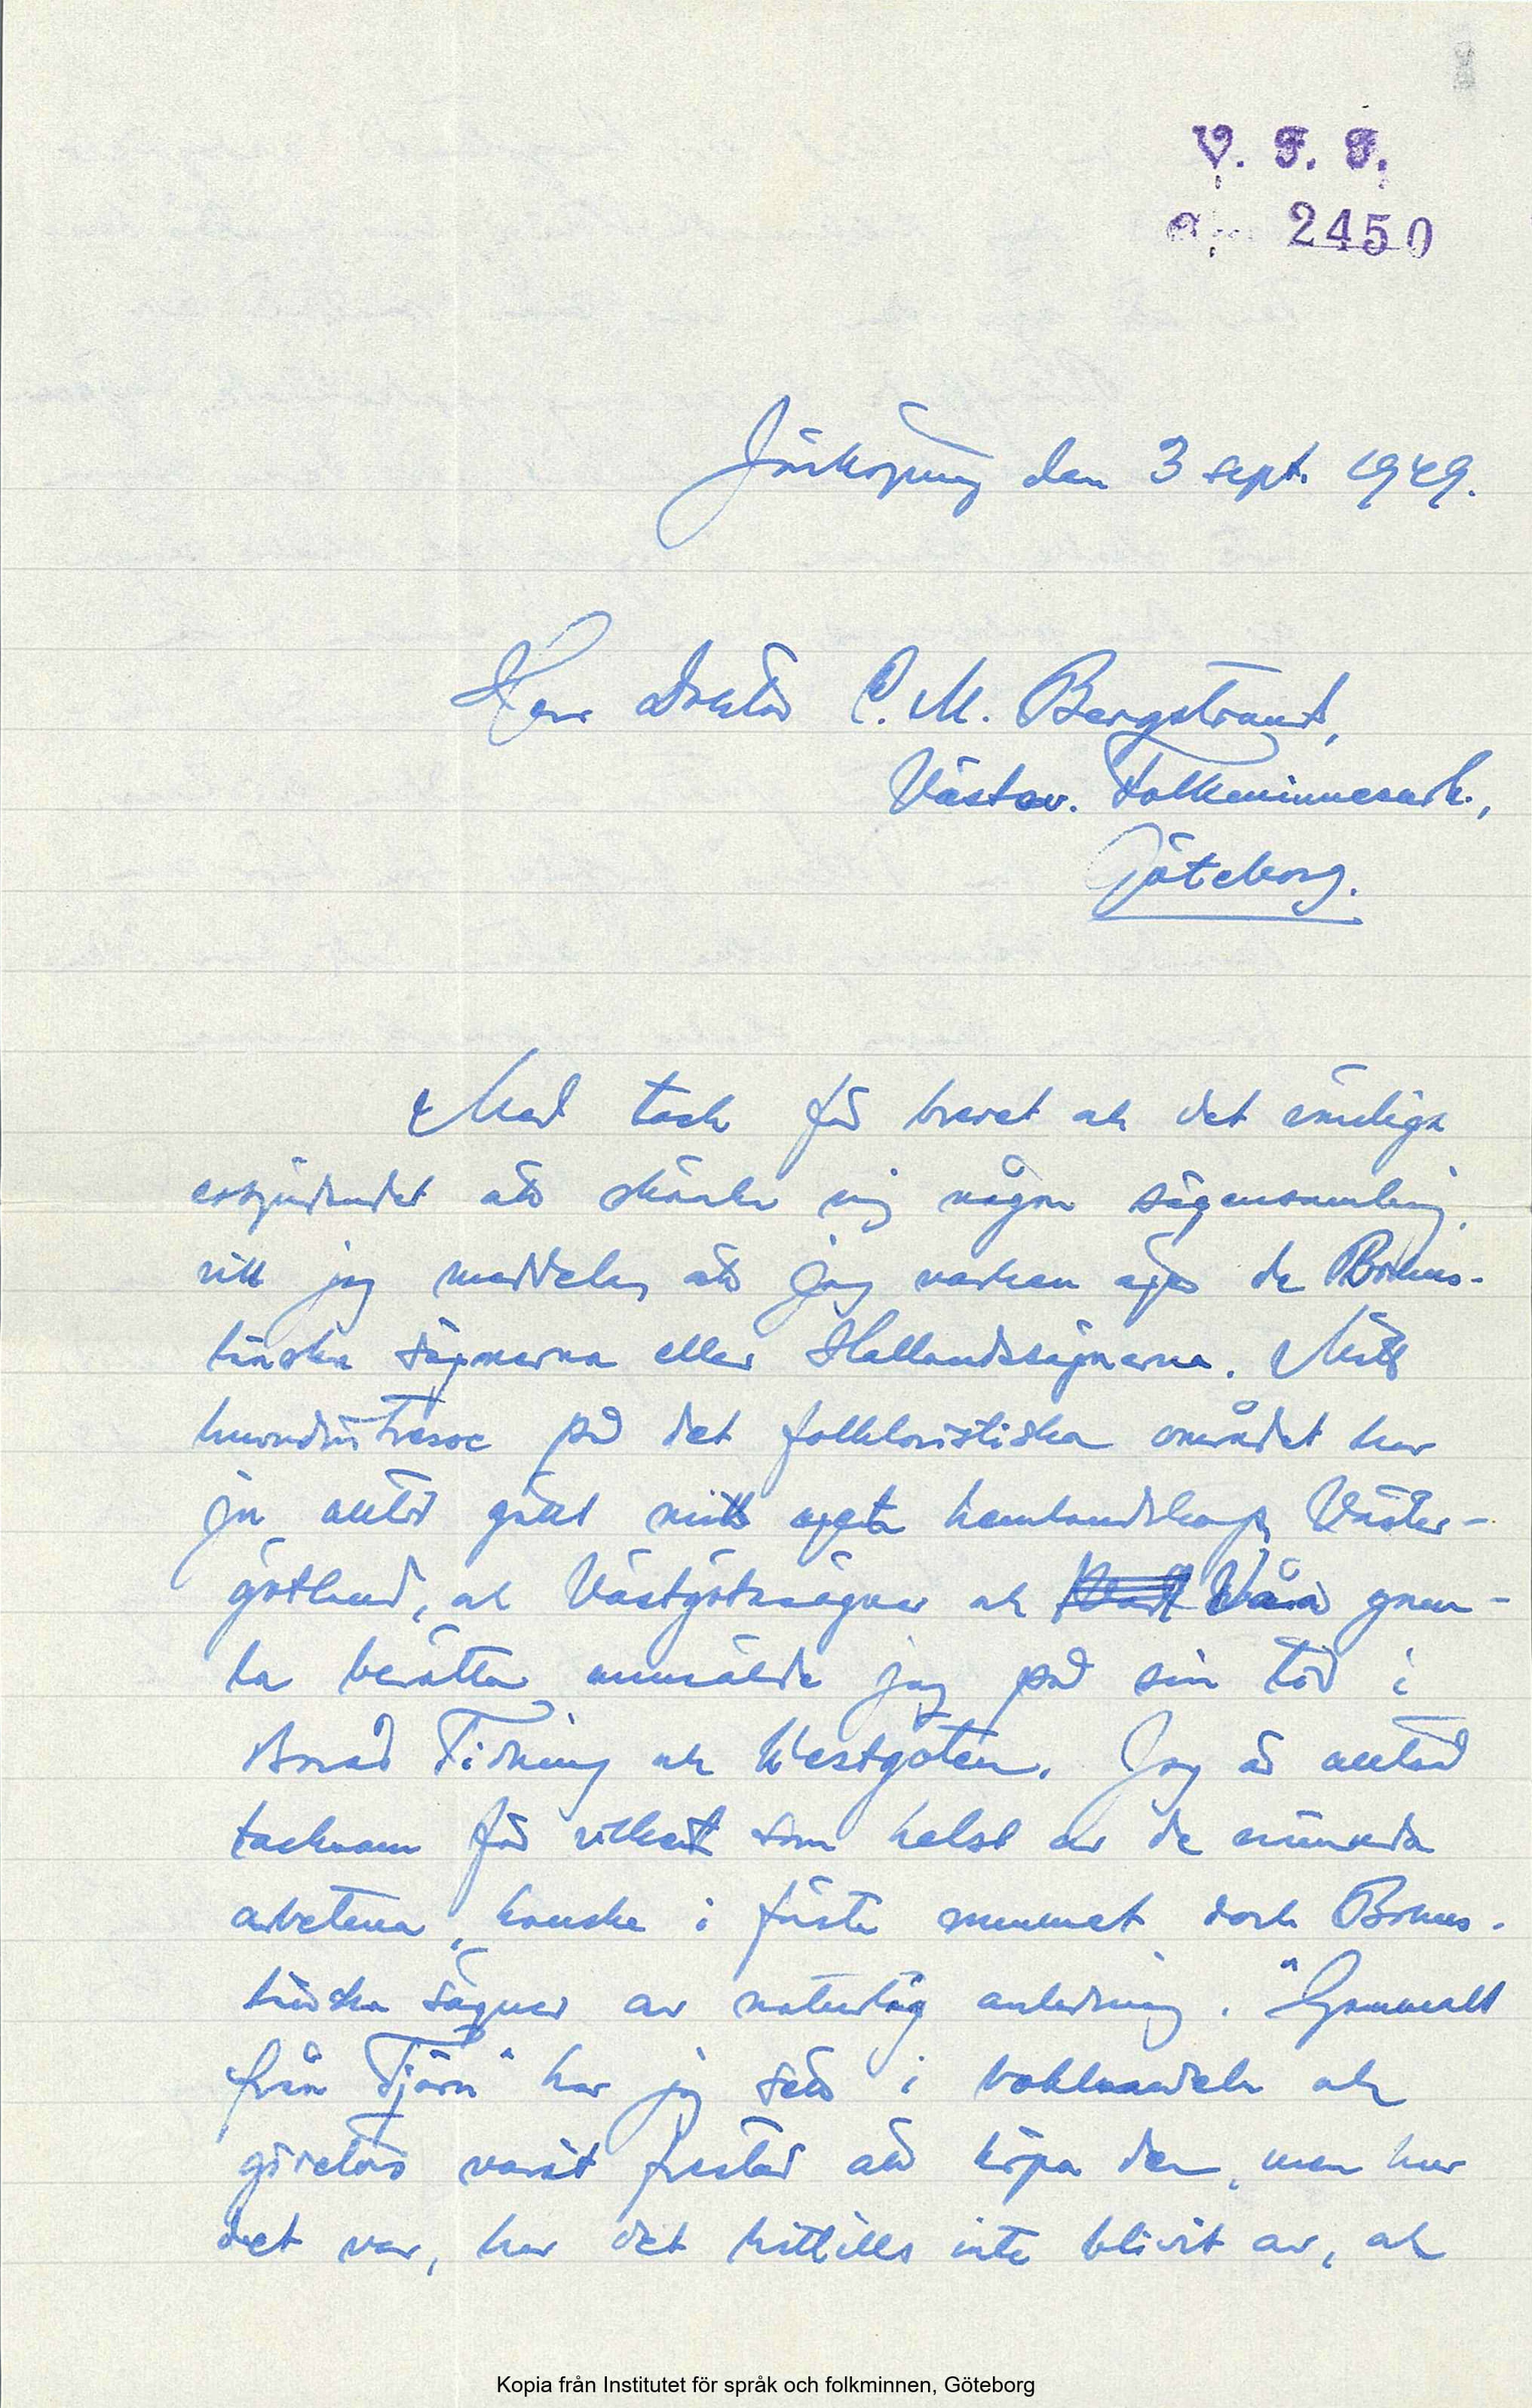 V. F. F.
2450
den 3 sept. 1949.
Herr Doktor C. M. Bergstrand,
Västsv. Folkminnesark.,
Göteborg.
Med tack för brevet och det
erbjudandet att skänka mig någon sägensamling,
vill jag meddela, att jag varken äger de Bohus-
länska sägnerna eller Hallandssägnerna. Mitt
huvudintresse på det folkloristiska området har
ju alltid gällt mitt eget hemlandskap, Väster-
götland, och Västgötasägner och Våra gran-
na berätta anmälde jag på sin tid i
Borås Tidning och Westgöten. Jag är alltså
tacksam för vilket som helst av de nämnda
arbetena, kanske i första rummet dock Bohus-
länska sägner av naturlig anledning. "Gammalt
från Tjörn" har jag sett i bokhandeln och
givetvis varit frestad att köpa den, men hur
det var, har det hittills inte blivit av, och
Kopia från Institutet för språk och folkminnen, Göteborg